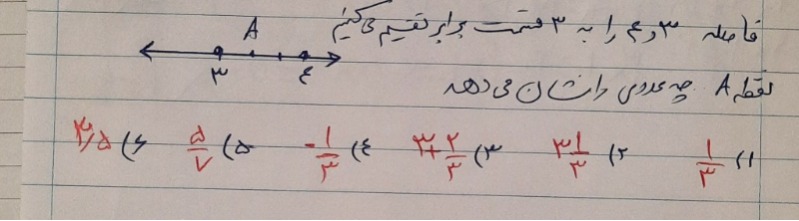 فاصله ۳ و ۴ را به ۳ قسمت برابر تقسیم می‌کنیم
A
۳ ۴
نقطه A چه عددی را نشان می‌دهد
۱) ۱/۳ ۲) ۳ ۱/۳ ۳) ۳+۲/۳ ۴) -۱/۳ ۵) ۵/۷ ۶) ۳/۵